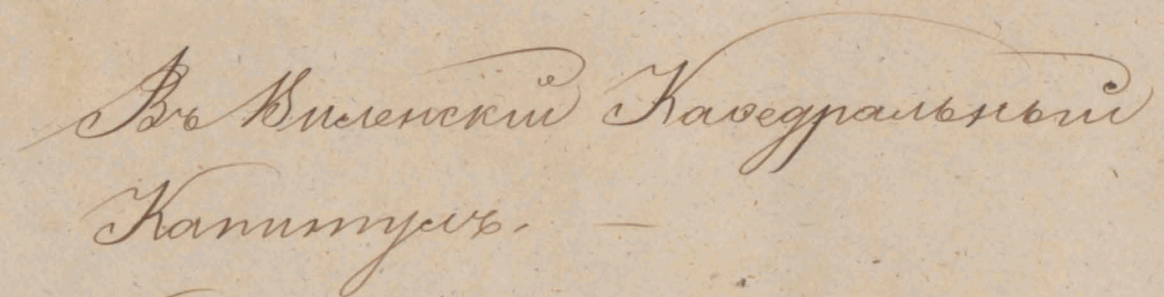 Въ Виленскій Каѳедральный
Капитулъ. —